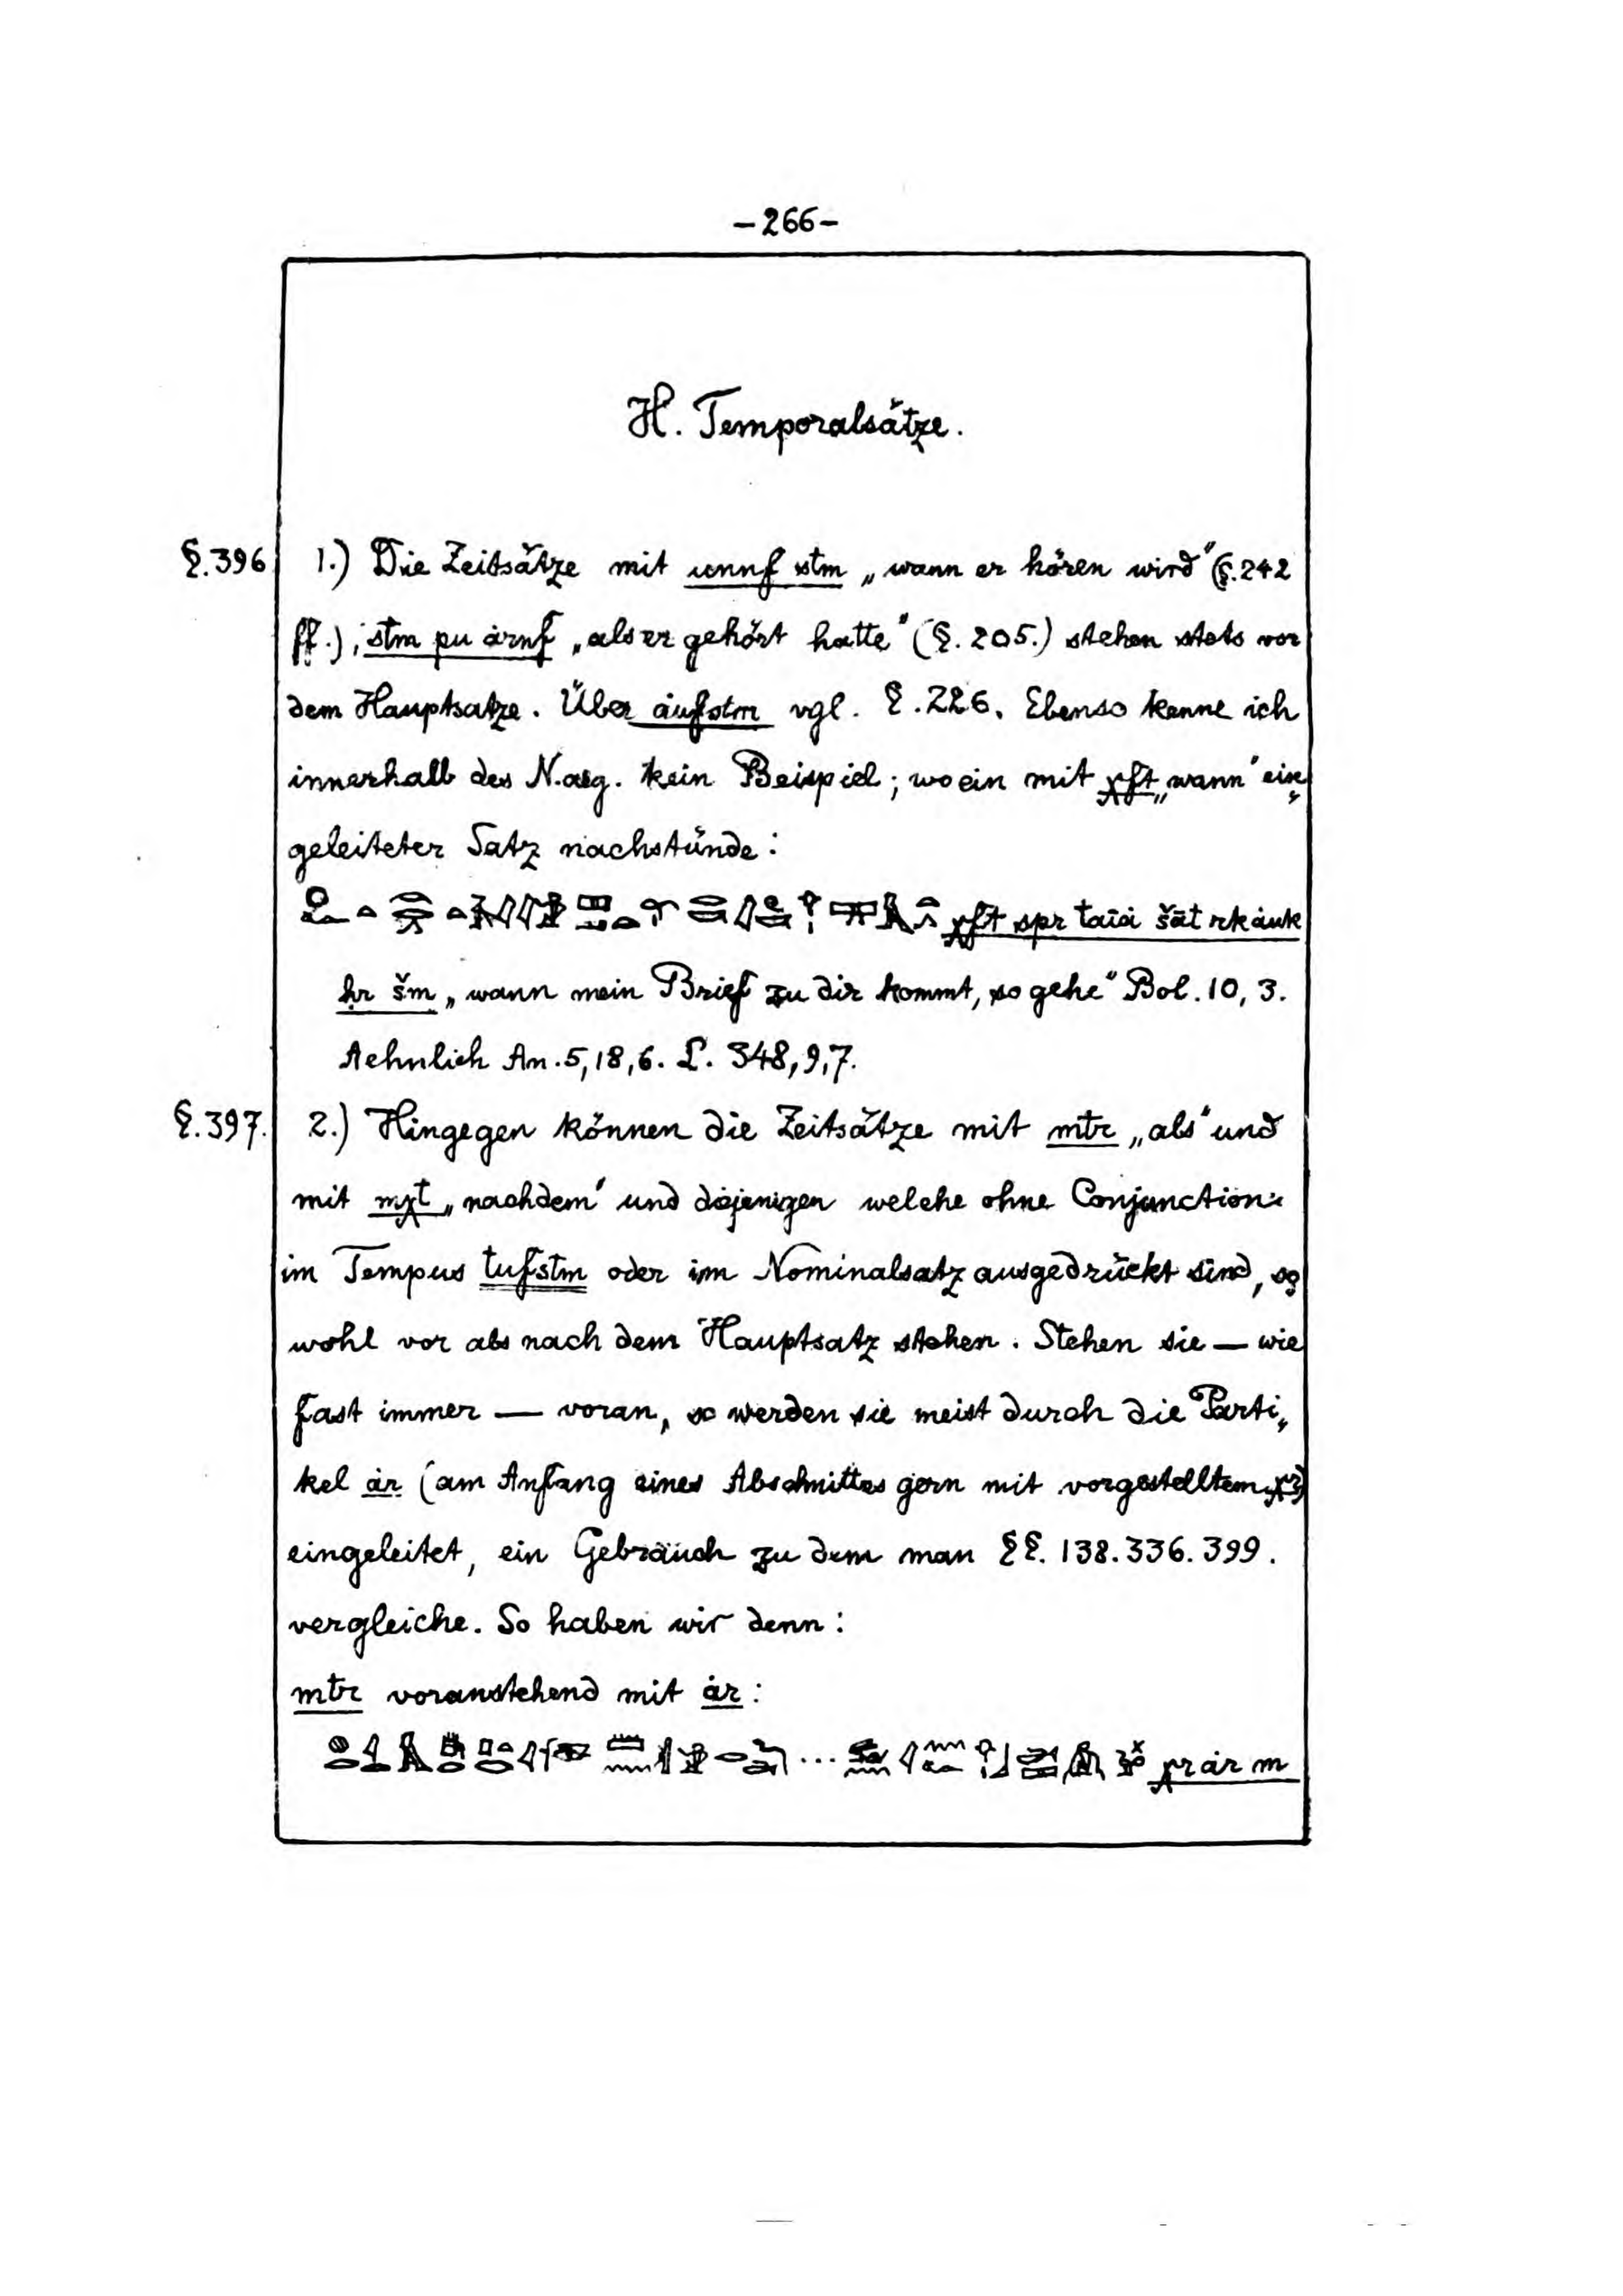 –266–
H. Temporalsätze.
§.396 1.) Die Zeitsätze mit unnf stm „wann er hören wird" (§.242
ff.), stm pu àrnf „als er gehört hatte" (§.205.) stehen stets vor
dem Hauptsatze. Über àufstm vgl. §.226. Ebenso kenne ich
innerhalb des N.aeg. kein Beispiel; wo ein mit χft „wann" ein„
geleiteter Satz nachstünde:
χft spr taià šāt rkàuk
ḥr šm „wann mein Brief zu dir kommt, so gehe" Bol. 10, 3.
Aehnlich An. 5,18,6. L. 348,9,7.
§.397. 2.) Hingegen können die Zeitsätze mit mtr „als" und
mit mχt „nachdem" und diejenigen welche ohne Conjunction
im Tempus tufstm oder im Nominalsatz ausgedrückt sind, so
wohl vor als nach dem Hauptsatz stehen. Stehen sie — wie
fast immer — voran, so werden sie meist durch die Parti„
kel àr (am Anfang eines Abschnittes gern mit vorgestelltem χr)
eingeleitet, ein Gebrauch zu dem man §§. 138.336.399.
vergleiche. So haben wir denn:
mtr voranstehend mit àr:
... χr àr m